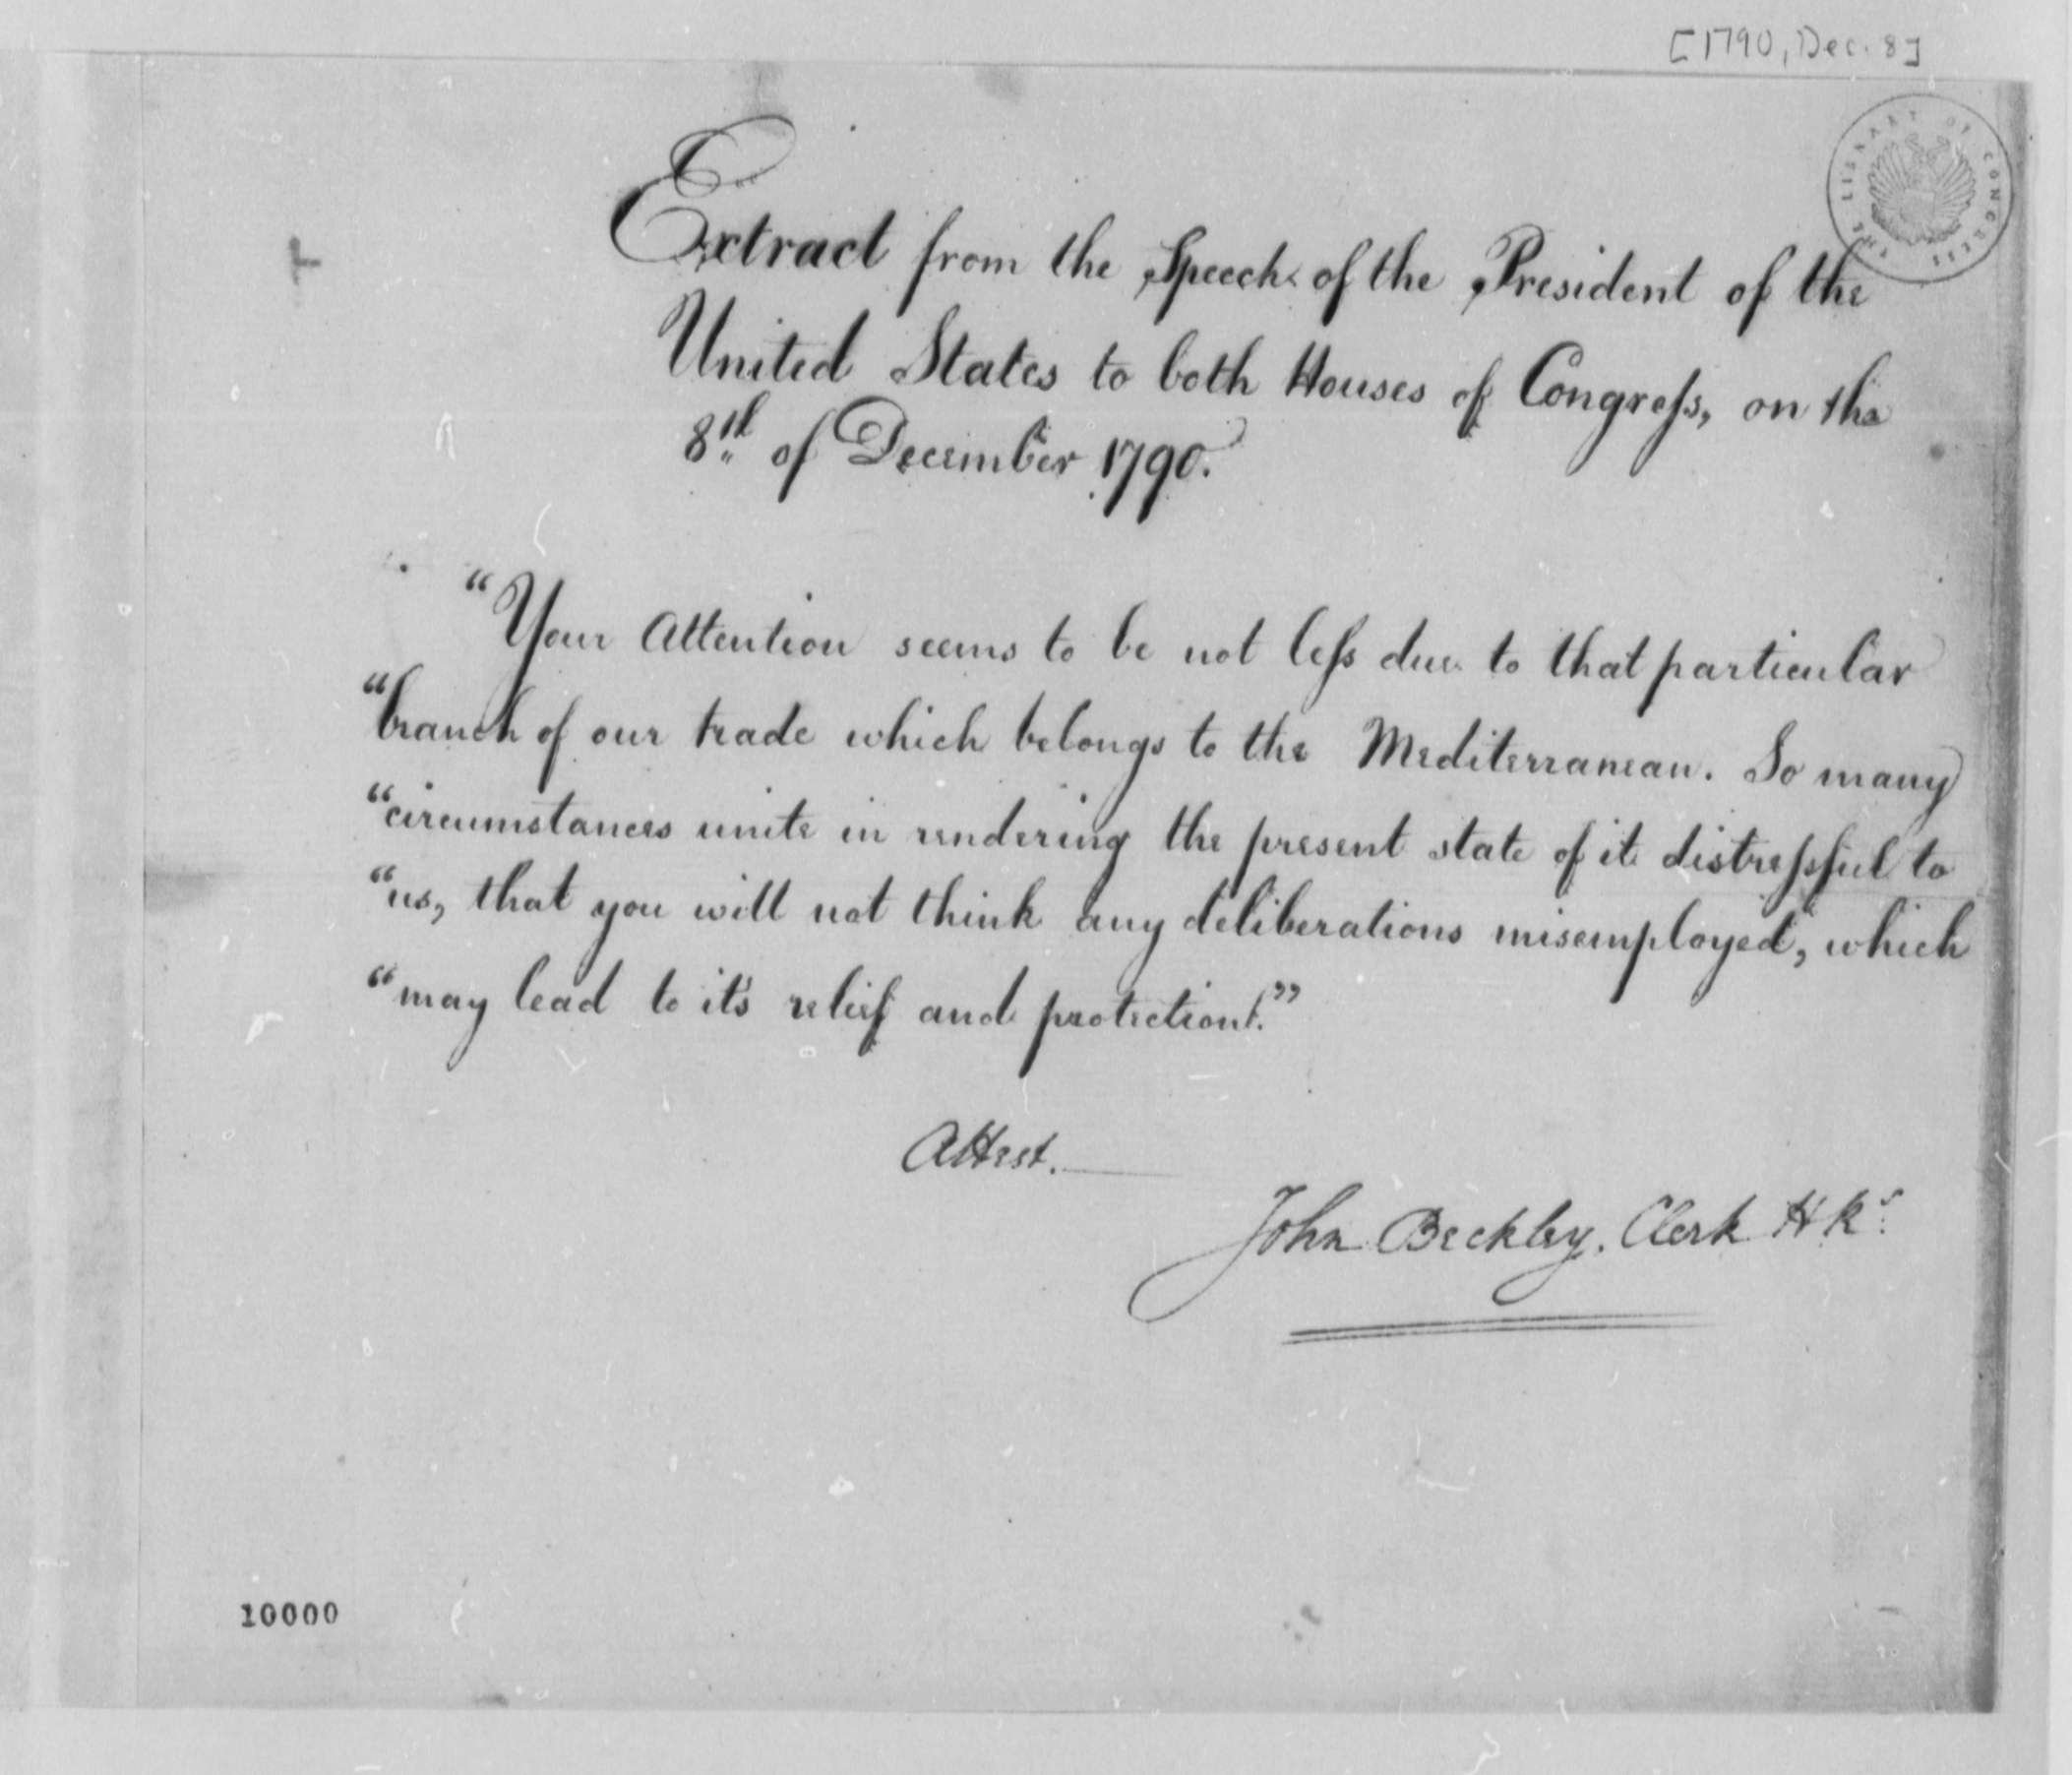 [1790, Dec. 8]
THE LIBRARY OF CONGRESS
Extract from the Speech of the President of the
United States to both Houses of Congreſs, on the
8th of December 1790.
"Your Attention seems to be not leſs due to that particular
"branch of our trade which belongs to the Mediterranean. So many
"circumstances unite in rendering the present state of it distreſsful to
"us, that you will not think any deliberations misemployed, which
"may lead to it's relief and protection."
Attest.
John Beckley. Clerk H Rs.
10000